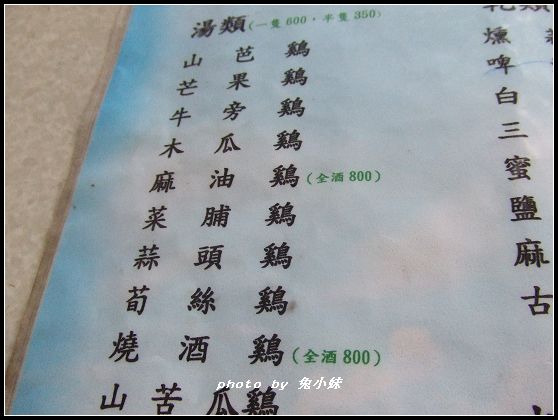 湯類(一隻600·半隻350)
山芭雞
芒果雞
牛旁雞
木瓜雞
麻油雞(全酒800)
菜脯雞
蒜頭雞
荀絲雞
燒酒雞(全酒800)
山苦瓜雞
燻
啤
白
三
蜜
鹽
麻
古
photo by 兔小妹